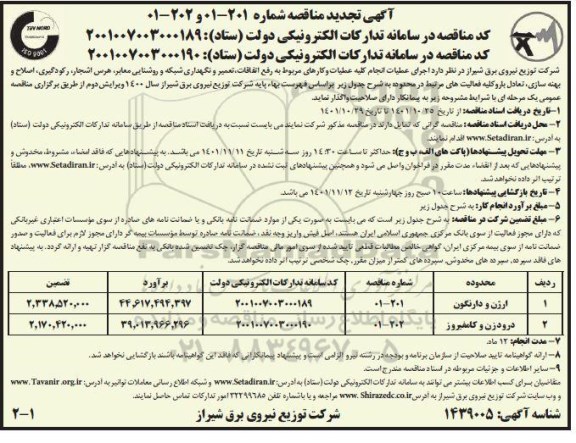 آگهی تجدید مناقصه شماره ۲۰۱-۰۱ و ۲۰۲-۰۱
کد مناقصه در سامانه تدارکات الکترونیکی دولت (ستاد): ۲۰۰۱۰۰۷۰۰۳۰۰۰۱۸۹
کد مناقصه در سامانه تدارکات الکترونیکی دولت (ستاد): ۲۰۰۱۰۰۷۰۰۳۰۰۰۱۹۰
TUV NORD
ISO 9001
شرکت توزیع نیروی برق شیراز در نظر دارد اجرای عملیات انجام کلیه عملیات وکارهای مربوط به رفع اتفاقات،تعمیر و نگهداری شبکه و روشنایی معابر، هرس اشجار، رکودگیری، اصلاح و
بهینه سازی، تعادل بار وکلیه فعالیت های مرتبط در محدوده به شرح جدول زیر براساس فهرست بهاء پایه شرکت توزیع نیروی برق شیراز سال ۱۴۰۰ ویرایش دوم از طریق برگزاری مناقصه
عمومی یک مرحله ای با شرایط مشروحه زیر به پیمانکار دارای صلاحیت واگذار نماید.
۱- تاریخ دریافت اسناد مناقصه: از تاریخ ۱۴۰۱/۱۰/۲۵ تا تاریخ ۱۴۰۱/۱۰/۲۹
۲- محل دریافت اسناد مناقصه: مناقصه گرانی که تمایل دارند در مناقصه مذکور شرکت نمایند می بایست نسبت به دریافت اسناد مناقصه از طریق سامانه تدارکات الکترونیکی دولت (ستاد)
به آدرس: www.Setadiran.ir اقدام نمایند.
۳- مهلت تحویل پیشنهادها (پاکت های الف، ب و ج): حداکثر تا ساعت ۱۴:۳۰ روز سه شنبه تاریخ ۱۴۰۱/۱۱/۱۱ می باشد. به پیشنهادهایی که فاقد امضاء، مشروط، مخدوش و
پیشنهادهایی که بعد از انقضاء مدت مقرر در فراخوان واصل می شود و همچنین پیشنهادهای ثبت نشده در سامانه تدارکات الکترونیکی دولت(ستاد) به آدرس: www.Setadiran.ir مطلقاً
ترتیب اثر داده نخواهد شد.
۴- تاریخ بازگشایی پیشنهادها: ساعت ۱۰ صبح روز چهارشنبه تاریخ ۱۴۰۱/۱۱/۱۲ می باشد.
۵- مبلغ برآورد انجام کار: به شرح جدول زیر
۶- مبلغ تضمین شرکت در مناقصه: به شرح جدول زیر است که می بایست به صورت یکی از موارد ضمانت نامه بانکی و یا ضمانت نامه های صادره از سوی مؤسسات اعتباری غیربانکی
که دارای مجوز فعالیت از سوی بانک مرکزی جمهوری اسلامی ایران هستند، اصل فیش واریز وجه نقد، ضمانت نامه صادره توسط مؤسسات بیمه گر دارای مجوز لازم برای فعالیت و صدور
ضمانت نامه از سوی بیمه مرکزی ایران، گواهی خالص مطالبات قطعی تایید شده از سوی امور مالی مناقصه گزار، چک تضمین شده بانکی به نفع مناقصه گزار تهیه و ارائه گردد. به پیشنهاد
های فاقد سپرده، سپرده های مخدوش، سپرده های کمتر از میزان مقرر، چک شخصی ترتیب اثر داده نخواهد شد.
ردیف محدوده شماره مناقصه کد سامانه تدارکات الکترونیکی دولت برآورد تضمین
۱ ارژن و دارنگون ۲۰۱-۰۱ ۲۰۰۱۰۰۷۰۰۳۰۰۰۱۸۹ ۴۴,۶۱۷,۴۹۴,۳۹۷ ۲,۳۳۸,۵۲۰,۰۰۰
۲ درودزن و کامفیروز ۲۰۲-۰۱ ۲۰۰۱۰۰۷۰۰۳۰۰۰۱۹۰ ۳۹,۰۱۳,۹۶۶,۲۹۶ ۲,۱۷۰,۴۲۰,۰۰۰
۷- مدت انجام: ۱۲ ماه.
۸- ارائه گواهینامه تایید صلاحیت از سازمان برنامه و بودجه در رشته نیرو الزامی است و پیشنهاد پیمانکارانی که فاقد این گواهینامه باشند بازگشایی نخواهد شد.
۹- سایر اطلاعات و جزئیات مربوطه در اسناد مناقصه مندرج است.
متقاضیان برای کسب اطلاعات بیشتر می توانند به سامانه تدارکات الکترونیکی دولت (ستاد) به آدرس: www.Setadiran.ir و شبکه اطلاع رسانی معاملات توانیر به آدرس: www.Tavanir.org.ir
و وب سایت شرکت توزیع نیروی برق شیراز به آدرس www.Shirazedc.co.ir مراجعه و یا با شماره تلفن ۳۲۲۹۹۶۸۵ امور تدارکات تماس حاصل نمایند.
شناسه آگهی: ۱۴۳۹۰۰۵
شرکت توزیع نیروی برق شیراز
۲-۱